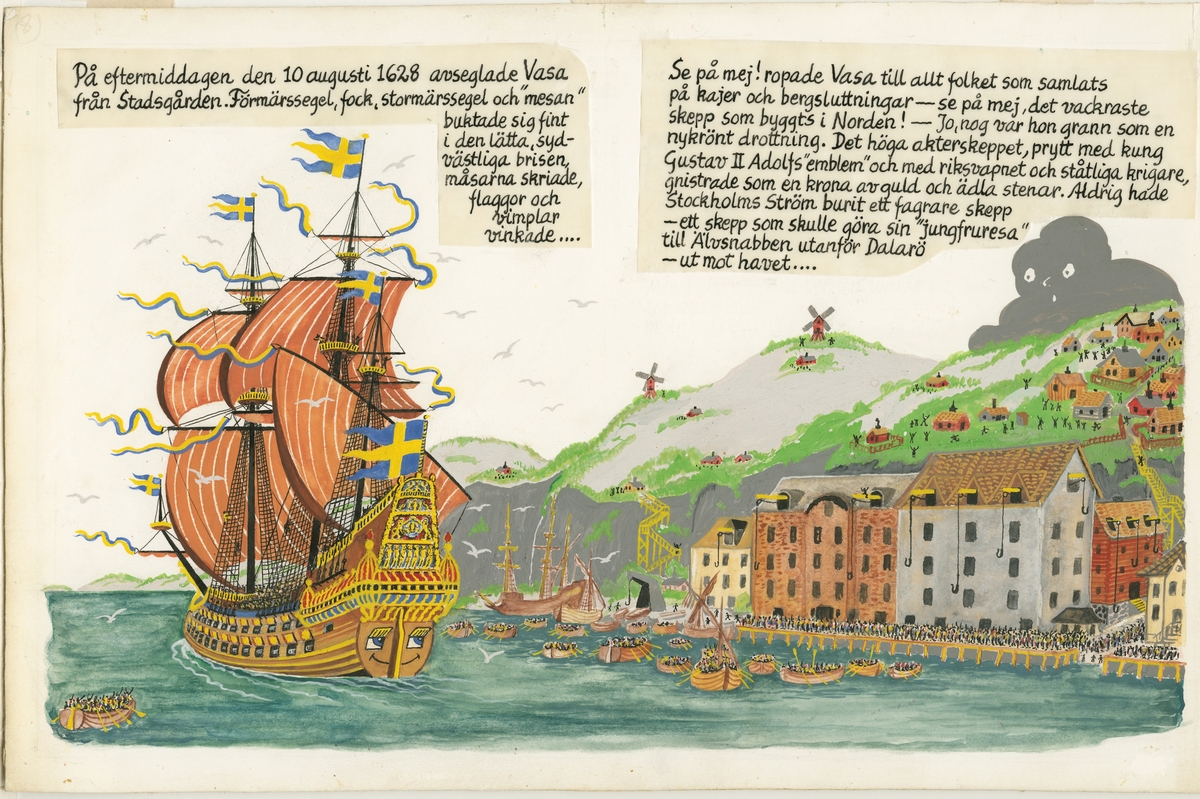 På eftermiddagen den 10 augusti 1628 avseglade Vasa
från Stadsgården. Förmärssegel, fock, stormärssegel och "mesan"
buktade sig fint
i den lätta, syd-
västliga brisen,
måsarna skriade,
flaggor och
vimplar
vinkade....
Se på mej! ropade Vasa till allt folket som samlats
på kajer och bergsluttningar — se på mej, det vackraste
skepp som byggts i Norden! — Jo, nog var hon grann som en
nykrönt drottning. Det höga akterskeppet, prytt med kung
Gustav II Adolfs "emblem" och med riksvapnet och ståtliga krigare,
gnistrade som en krona av guld och ädla stenar. Aldrig hade
Stockholms Ström burit ett fagrare skepp
— ett skepp som skulle göra sin "jungfruresa"
till Älvsnabben utanför Dalarö
— ut mot havet....